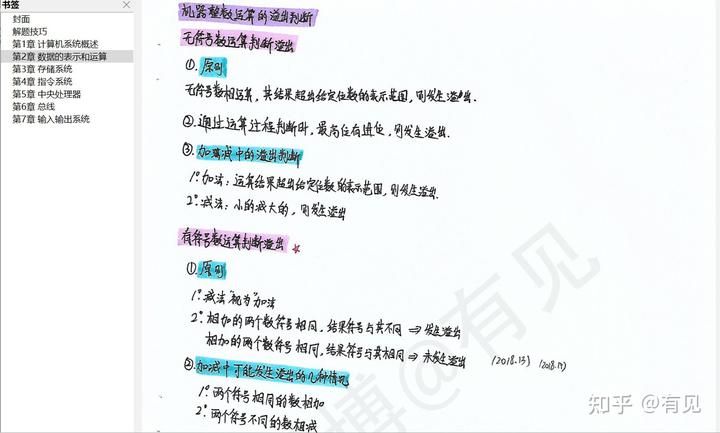 书签
封面
解题技巧
第1章 计算机系统概述
第2章 数据的表示和运算
第3章 存储系统
第4章 指令系统
第5章 中央处理器
第6章 总线
第7章 输入输出系统
机器整数运算的溢出判断
无符号数运算判断溢出
①. 原则
无符号数相运算，其结果超出给定位数的表示范围，则发生溢出.
②. 通过运算过程判断时，最高位有进位，则发生溢出.
③ 加减中的溢出判断
1°. 加法：运算结果超出给定位数的表示范围，则发生溢出.
2°. 减法：小的减大的，则发生溢出
有符号数运算判断溢出 ★
①. 原则
1°. 减法"视为"加法
2°. 相加的两个数符号相同，结果符号与其不同 ⇒ 发生溢出
相加的两个数符号相同，结果符号与其相同 ⇒ 未发生溢出 (2018.13) (2018.14)
②. 加减中可能发生溢出的几种情况
1°. 两个符号相同的数相加
2°. 两个符号不同的数相减
博@有见
知乎 @有见